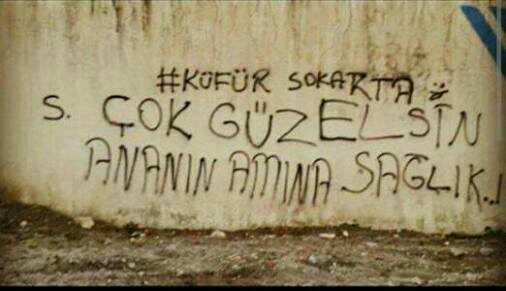 #KÜFÜR SOKARTA
S. ÇOK GÜZELSİN
ANANIN AMINA SAĞLIK..!